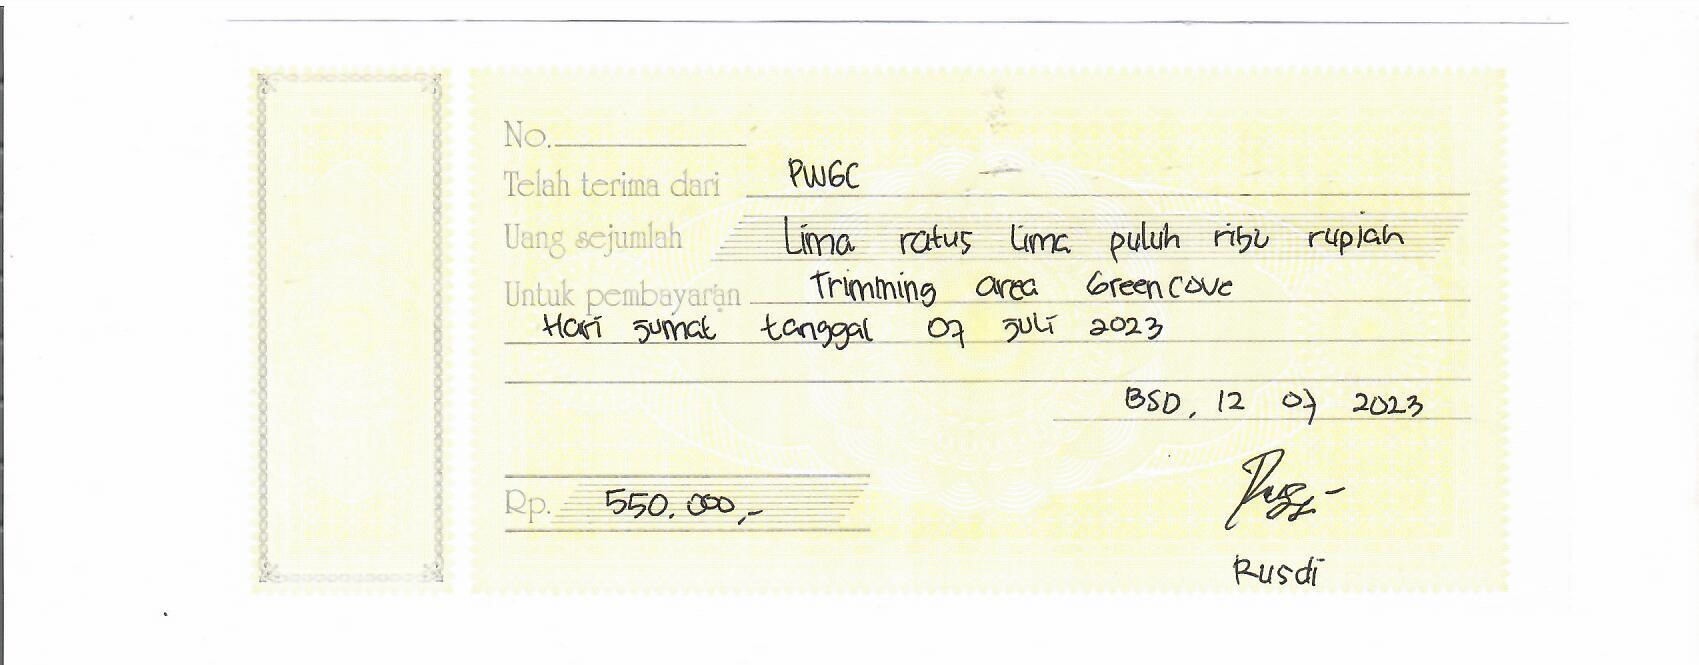 No.
Telah terima dari PWGC
Uang sejumlah Lima ratus lima puluh ribu rupiah
Untuk pembayaran Trimming area Greencove
Hari Jumat tanggal 07 Juli 2023
BSD, 12 07 2023
Rp. 550.000,-
Rusdi